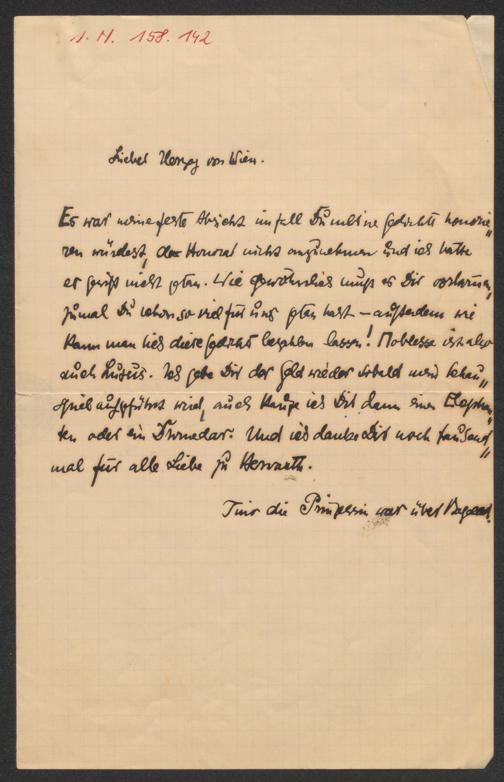 I. N. 158.142
Lieber Herzog von Wien.
Es war meine feste Absicht im fall Du meine Gedichte honorie„
ren würdest, das Honorar nicht anzunehmen und ich hätte
es gewiß nicht getan. Wie gewöhnlich muß es Dir
zumal Du schon so viel für uns getan hast – außerdem wie
kann man sich diese Gedichte bezahlen lassen! Noblesse ist also
auch Luxus. Ich gebe Dir das Geld wieder sobald mein Schau„
spiel aufgeführt wird, auch kaufe ich Dir dann einen Elephan„
ten oder ein Dromedar. Und ich danke Dir noch tausend„
mal für alle Liebe zu Herwarth.
Tino die Prinzessin war über Bagdad.